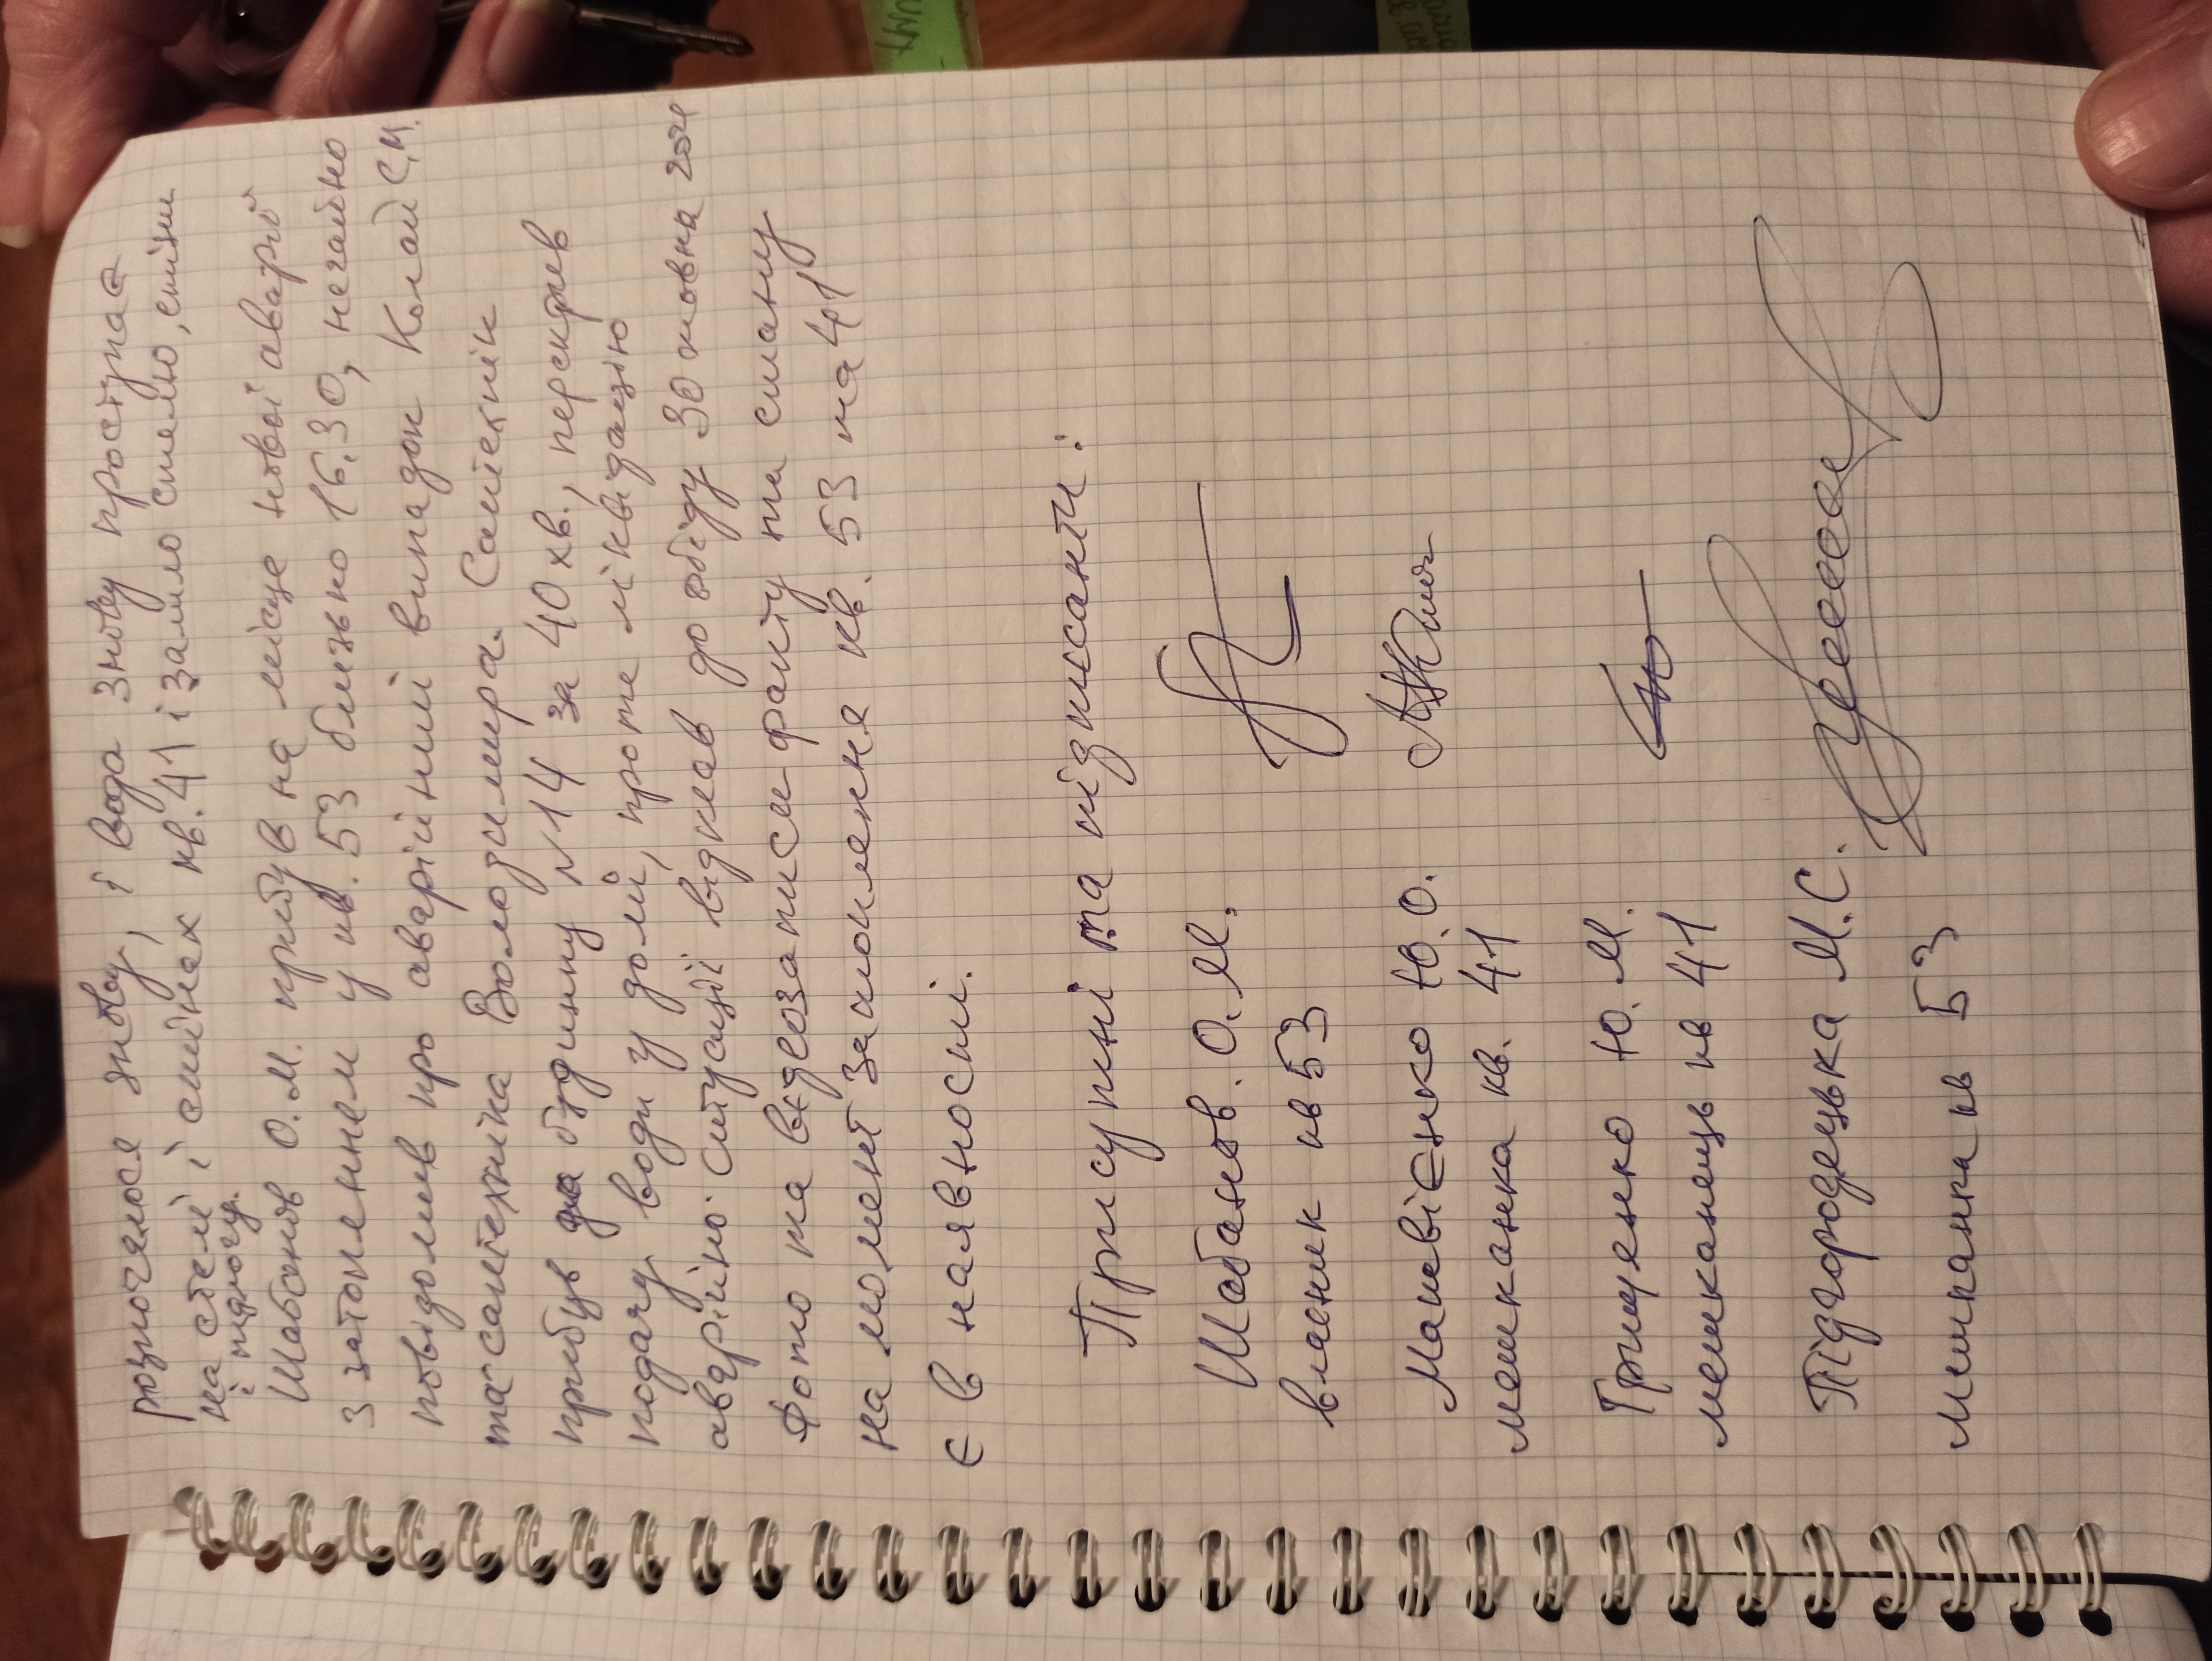 розпочалося знову, і вода знову проступає
на стелі і стінах кв. 41 і залило стелю, стіни
і підлогу.
Шабанов О.М. прибув на місце нової аварії
з затопленнем у кв. 53 близько 16.30, негайно
повідомив про аварійний випадок Колай С.М.
та сантехніка Володимира. Сантехнік
прибув до будинку №14 за 40 хв., перекрив
подачу води у домі, проте ліквідацію
аварійної ситуації відклав до обіду 30 жовтня 2024
Фото та відеозаписи факту та стану
на момент затоплення кв. 53 та 41
є в наявності.
Присутні та підписанти:
Шабанов О.М.
власник кв 53
Матвієнко Ю.О.
мешканка кв. 41
Грищенко Ю.М.
мешканець кв 41
Підгородецька М.С.
мешканка кв 53